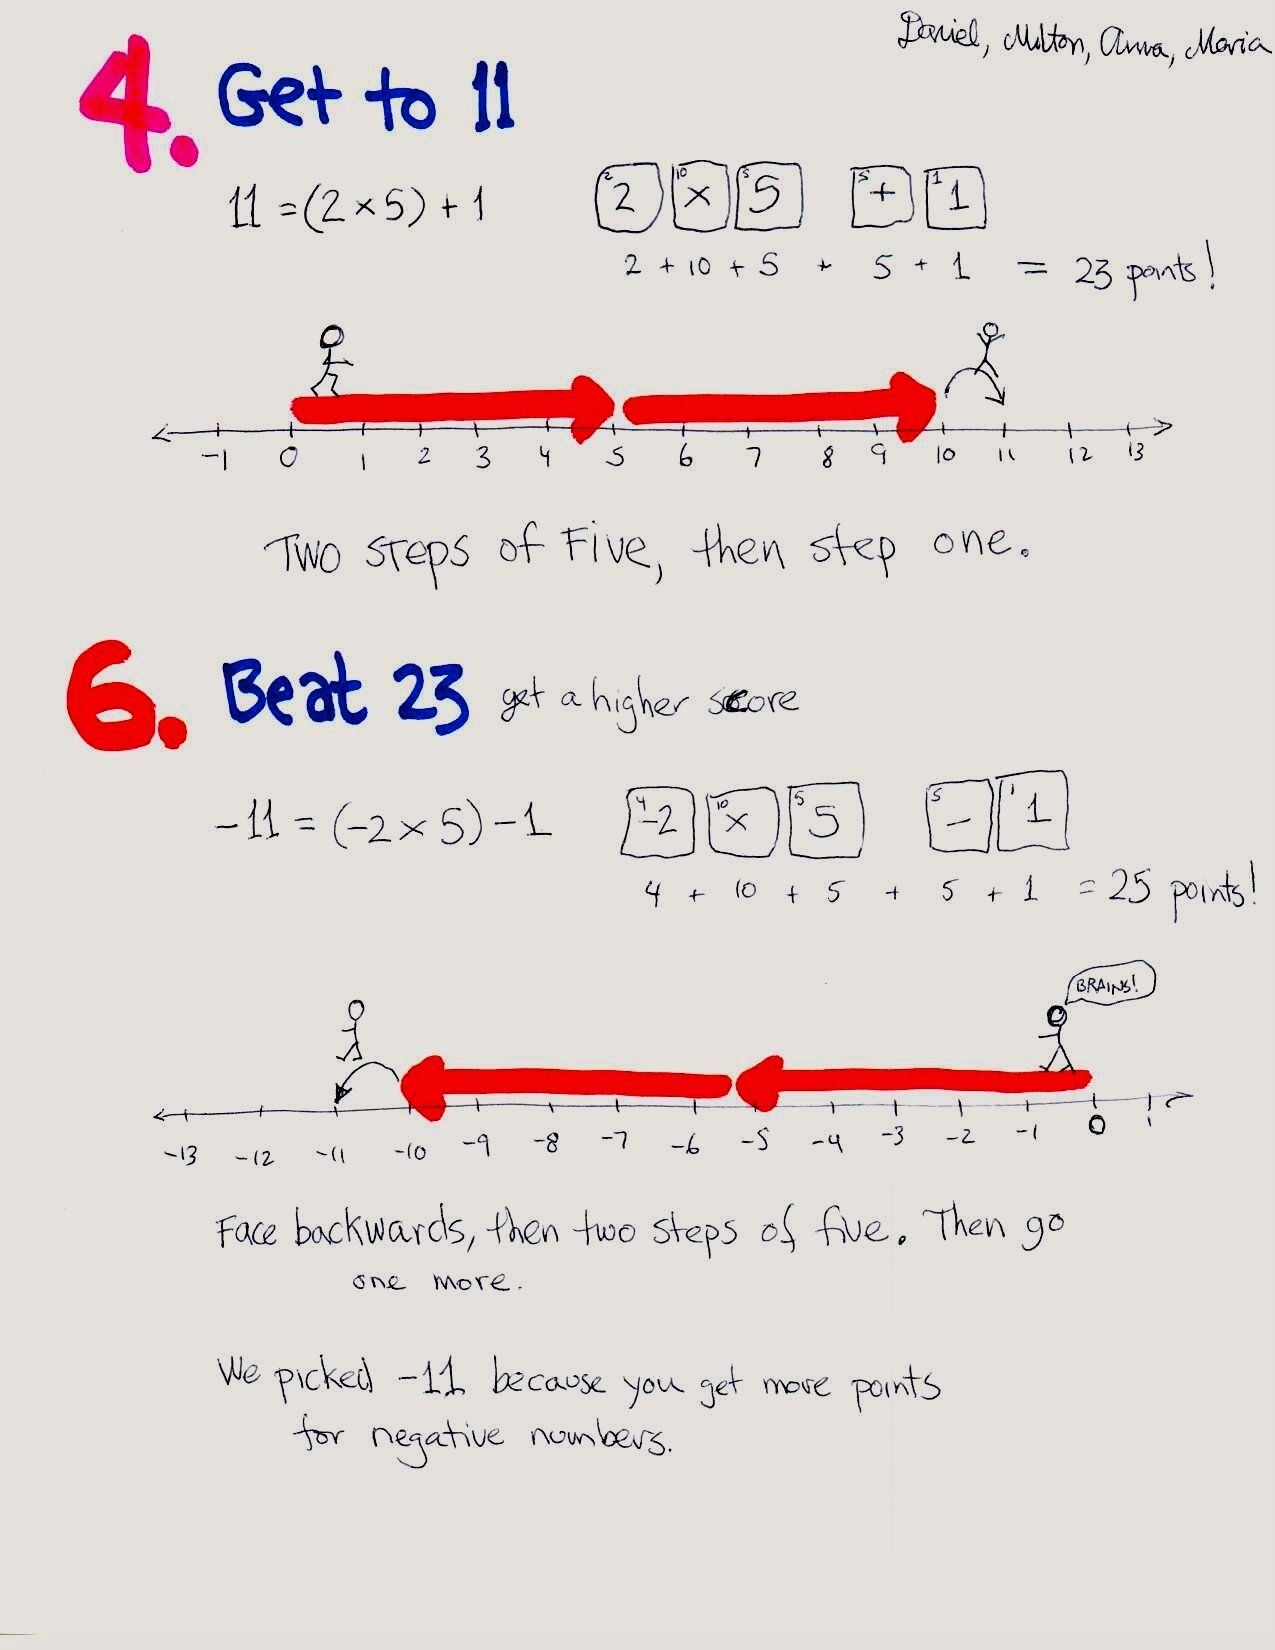 Daniel, Milton, Anna, Maria
4. Get to 11
11 = (2 × 5) + 1
2 2 10 × 5 5 5 + 1 1
2 + 10 + 5 + 5 + 1 = 23 points!
-1 0 1 2 3 4 5 6 7 8 9 10 11 12 13
Two steps of Five, then step one.
6. Beat 23 get a higher score
-11 = (-2 × 5) - 1
4 -2 10 × 5 5 5 - 1 1
4 + 10 + 5 + 5 + 1 = 25 points!
BRAINS!
-13 -12 -11 -10 -9 -8 -7 -6 -5 -4 -3 -2 -1 0 1
Face backwards, then two steps of five. Then go
one more.
We picked -11 because you get more points
for negative numbers.